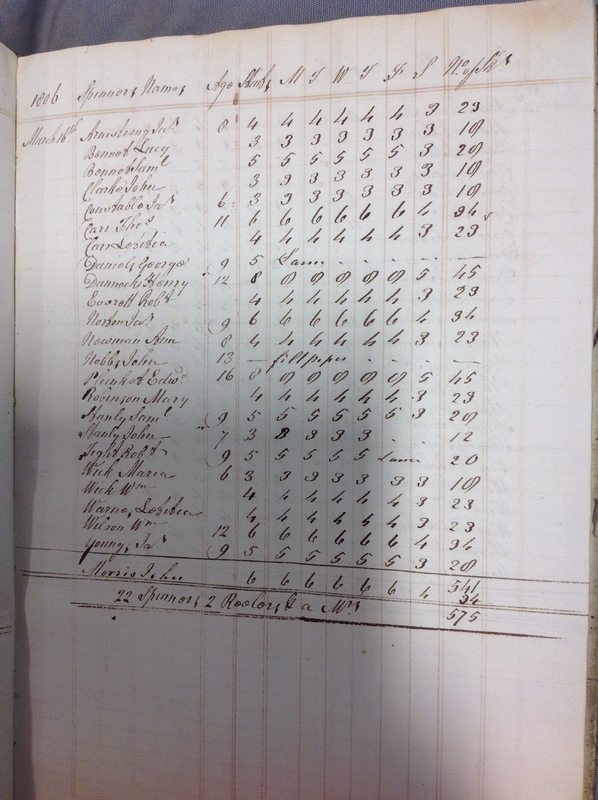 1806 Spinners Names Age Stints M T W T F S No. of Sk.s
March 16th Armstrong Jas 8 4 4 4 4 4 4 3 23
Bennet Lucy 3 3 3 3 3 3 3 18
Bennet Saml 5 5 5 5 5 5 3 28
Clarke John 3 3 3 3 3 3 3 18
Constable Jas 6 3 3 3 3 3 3 3 18
Carr Thos 11 6 6 6 6 6 6 4 34
Carr Letitia 4 4 4 4 4 4 3 23
Daniels George 9 5 Lame - - - - —
Dannock Henry 12 8 8 8 8 8 8 5 45
Everett Robt 4 4 4 4 4 4 3 23
Norton Jas 9 6 6 6 6 6 6 4 34
Newman Ann 8 4 4 4 4 4 4 3 23
Nobbs John 13 — fill pipes - - - —
Plunket Edwd 16 8 8 8 8 8 8 5 45
Robinson Mary 4 4 4 4 4 4 3 23
Stanly Saml 9 5 5 5 5 5 5 3 28
Stanly John 7 3 3 3 3 3 - - 12
Tight Robt 9 5 5 5 5 5 Lame - 20
Week Maria 6 3 3 3 3 3 3 3 18
Week Wm 4 4 4 4 4 4 3 23
Warne, Letitia 4 4 4 4 4 4 3 23
Wilson Wm 12 6 6 6 6 6 6 4 34
Young, Jas 9 5 5 5 5 5 5 3 28
541
Morris John 6 6 6 6 6 6 4 34
22 Spinners 2 Reelers & a Mrs 575